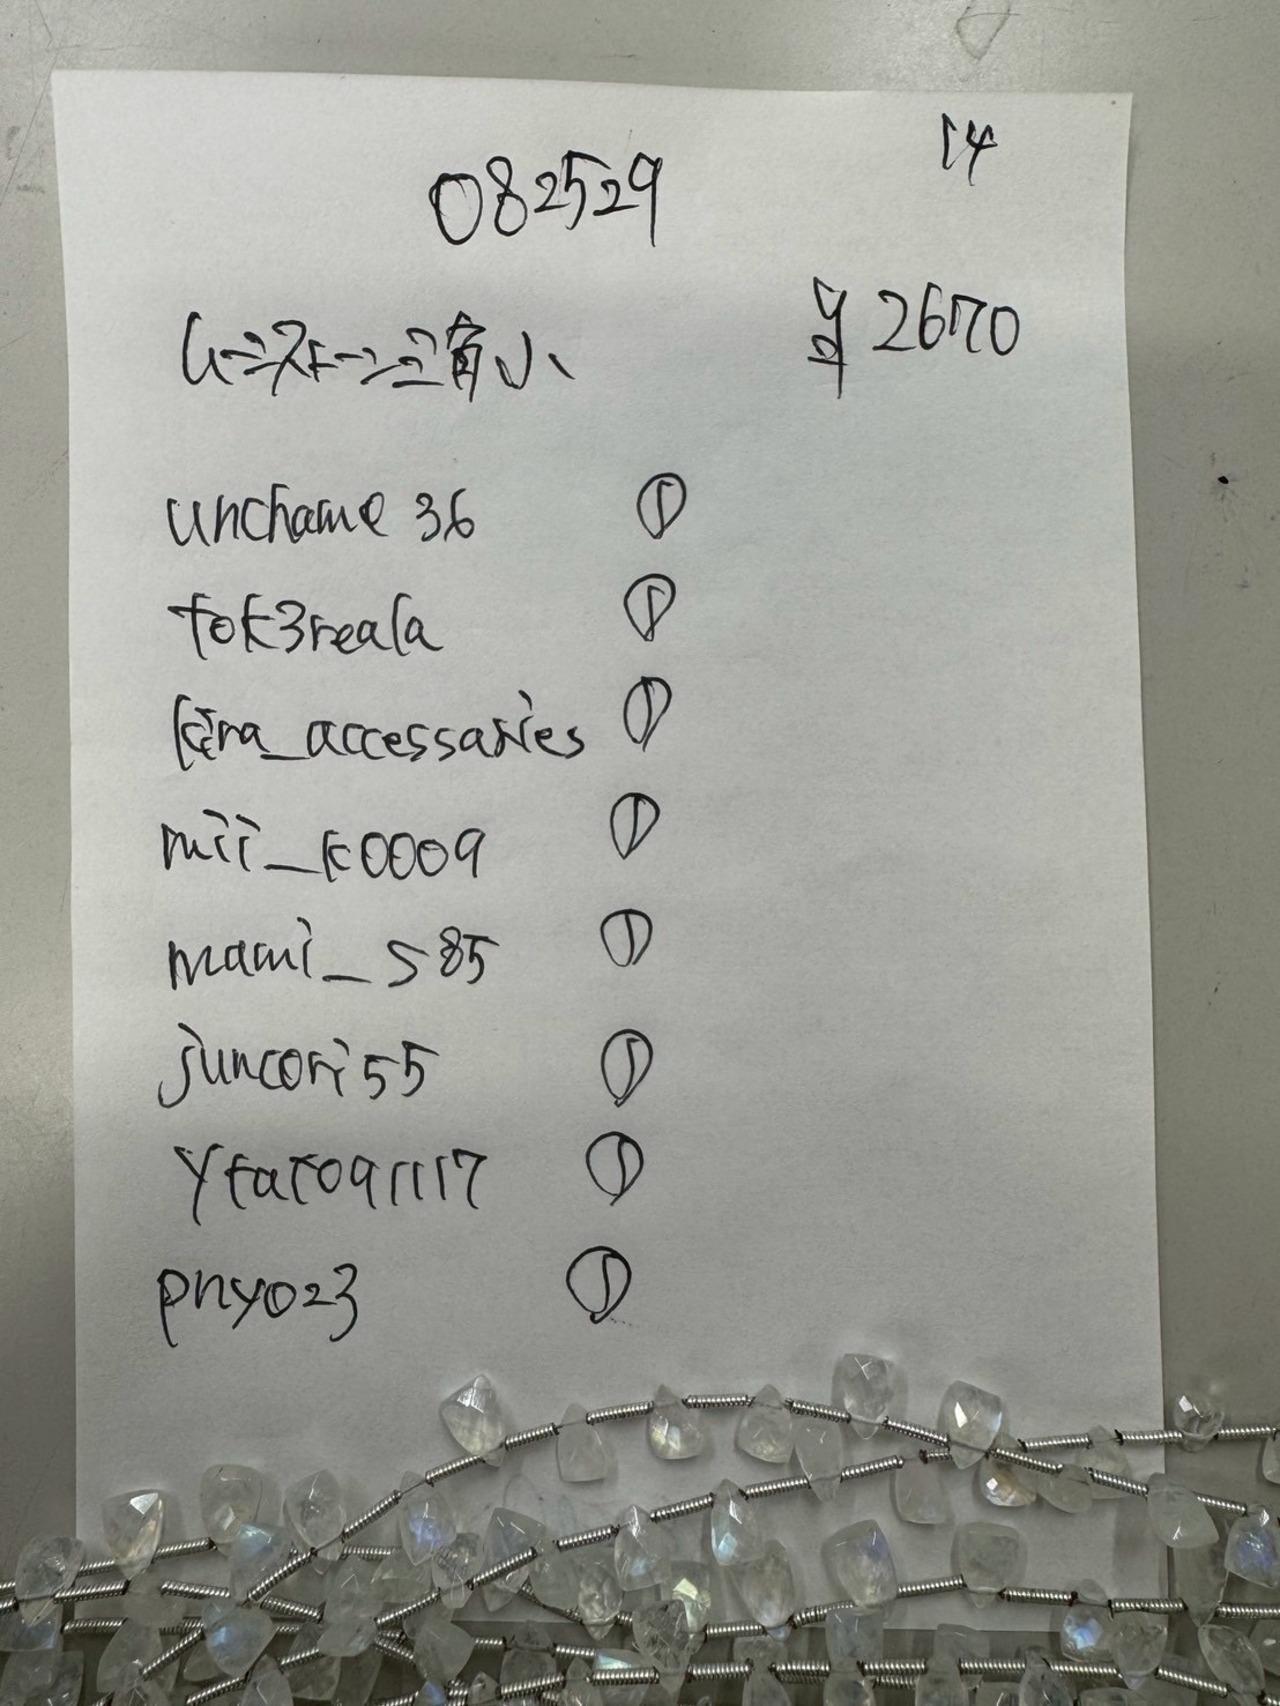 14
082529
ムーンストーン三角小 ¥2670
unchame36 ①
tok3reala ①
kira_accessaries ①
mii_k0009 ①
mami_s85 ①
juncori55 ①
ytat091117 ①
pnyo23 ①